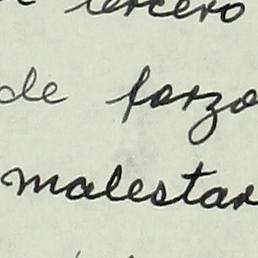 tercero
de forzo
malestar